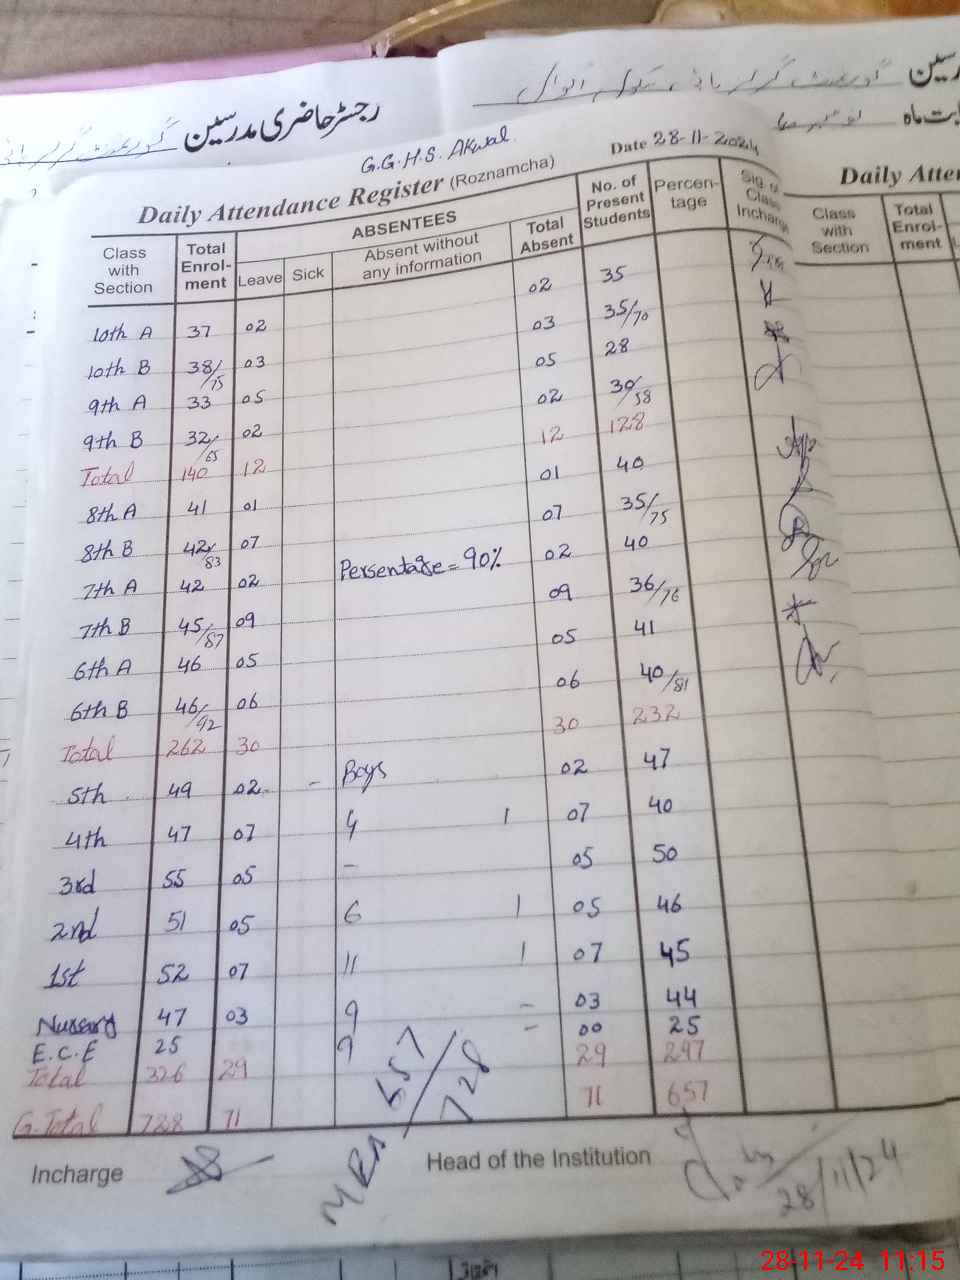 گورنمنٹ گرلز ہائی سکول اکوال
رجسٹر حاضری مدرسین
G.G.H.S. Akwal
Date 28-11-2024
Daily Attendance Register (Roznamcha)
Class with Section Total Enrol-ment ABSENTEES Leave Sick Absent without any information Total Absent No. of Present Students Percen-tage Sig. of Class Incharge
10th A 37 02 02 35
10th B 38/75 03 03 35/70
9th A 33 05 05 28
9th B 32/65 02 02 30/58
Total 140 12 12 128
8th A 41 01 01 40
8th B 42/83 07 07 35/75
7th A 42 02 Persentage = 90% 02 40
7th B 45/87 09 09 36/76
6th A 46 05 05 41
6th B 46/92 06 06 40/81
Total 262 30 30 232
5th 49 02 - Boys 02 47
4th 47 07 4 1 07 40
3rd 55 05 - 05 50
2nd 51 05 6 1 05 46
1st 52 07 11 1 07 45
Nursery 47 03 9 - 03 44
E.C.E 25 9 - 00 25
Total 326 29 29 297
G.Total 728 71 71 657
MEA 657/728
Incharge
Head of the Institution
28/11/24
Daily Atten
Class with Section Total Enrol-ment
28-11-24 11:15